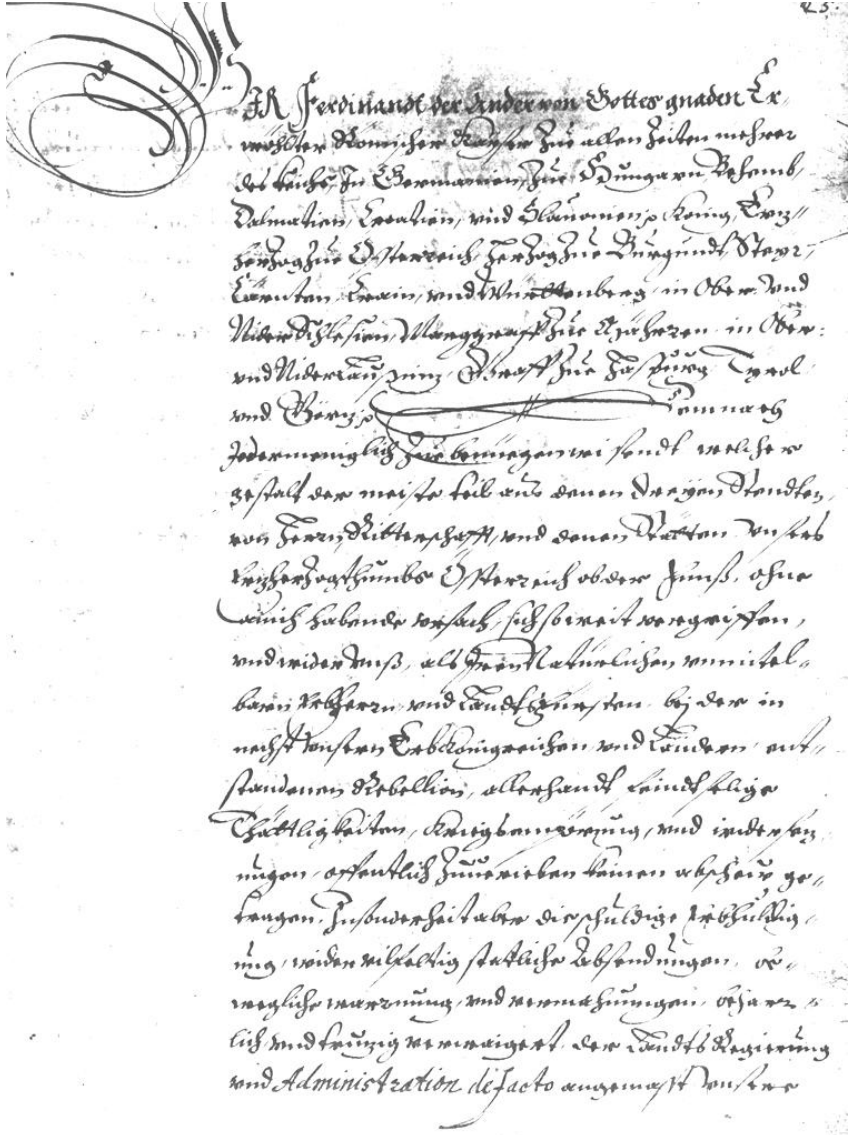 25.
WIR Ferdinandt der Ander von Gottes gnaden Er-
wöhlter Römischer Kayser zue allen Zeiten mehrer
des Reichs, In Germanien, zue Hungarn Behemb,
Dalmatien, Croatien, und Sclauonien König, Ertz-
herzog zue Österreich, Herzog zue Burgundt, Steyr,
Cärnten, Crain, und Württenberg, in Ober und
Nider Schlesien, Marggraff zue Mähren, in Ober:
und Nider Laußnitz, Graff zue Habspurg, Tyrol
und Görz Demnach
Jedermeniglich zue benuegen wissendt welcher
gestalt der meiste teil aus denen dreyen Stendten,
von Herrn, Ritterschafft, und denen Stätten unsers
Erzherzogthumbs Österreich ob der Ennß, ohne
ainich habende ursach, sich so weit vergriffen,
und wider unß, als Iren Natürlichen unmitel-
barn Erbherrn und Landtsfürsten, bey der in
nechst unsern Erbkönigreichen und Ländern, ent-
standenen Rebellion, allerhandt feindtselige
Thättligkeiten, Kriegsempörung, und widersez-
ungen, offentlich zuuerieben keinen abscheuh ge-
tragen, Insonderheit aber die schuldige Erbhuldig-
ung, wider vilfeltig statliche Absendungen, be-
wegliche warnung, und vermahnungen, beharr-
lich und truzig verwaigert, der Landts Regierung
und Administration de facto angemasst unsere